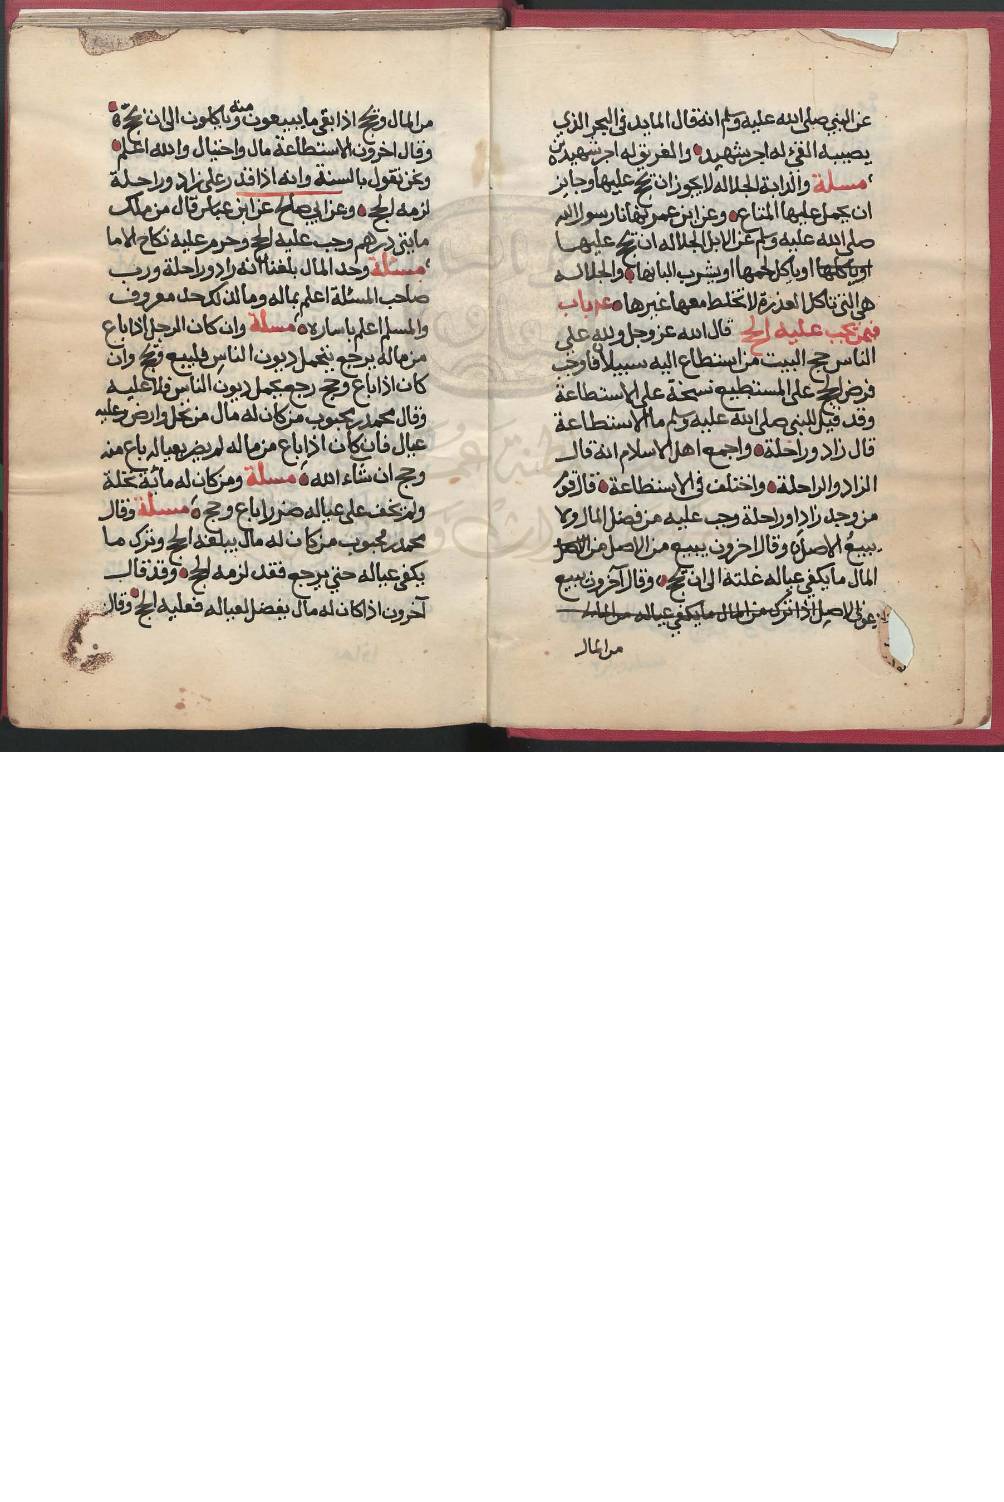 عن النبي صلى الله عليه وسلم انه قال المايد في البحر الذي
يصيبه القيء له اجر شهيد والغريق له اجر شهيدين
مسئلة والدابة الجلالة لا يجوز ان يحج عليها وجايز
ان يحمل عليها المتاع وعن ابن عمر نهانا رسول الله
صلى الله عليه وسلم عن الابل الجلالة ان نحج عليها
او ياكل لحمها او يشرب البانها والجلالة
هي التي تاكل العذرة لا تخلط معها غيرها باب
فيمن يجب عليه الحج قال الله عز وجل ولله على
الناس حج البيت من استطاع اليه سبيلا فاوجب
فرض الحج على المستطيع نسخة على الاستطاعة
وقد قيل للنبي صلى الله عليه وسلم ما الاستطاعة
قال زاد وراحلة واجمع اهل الاسلام انه قال
الزاد والراحلة واختلف في الاستطاعة قال قوم
من وجد زادا وراحلة وجب عليه من فضل المال ولا
يبيع الاصل وقال اخرون يبيع من الاصل من
المال ما يكفي عياله غلته الى ان يحج وقال آخرون يبيع
الاصل اذا ترك من المال ما يكفي عياله
من المال
من المال ويحج اذا بقي ما يبيعون منه وياكلون الى ان يحج
وقال اخرون الاستطاعة مال واحتيال والله اعلم
ونحن نقول بالسنة وانه اذا قدر على زاد وراحلة
لزمه الحج وعن ابي صالح عن ابن عباس قال من ملك
مايتي درهم وجب عليه الحج وحرم عليه نكاح الاما
مسئلة وحد المال بلغنا انه زاد وراحلة ورب
صاحب المسئلة اعلم بماله وما لذلك حد معروف
والمسلم اعلم باساره مسئلة وان كان الرجل اذا باع
من ماله يرجع يتحمل ديون الناس فليبع ويحج وان
كان اذا باع وحج رجع يحمل ديون الناس فلا عليه
وقال محمد بن محبوب من كان له مال من نخل وارض وعليه
عيال فان كان اذا باع من ماله لم يضر بعياله باع منه
وحج ان شاء الله مسئلة ومن كان له مائة نخلة
ولم يخف على عياله ضررا باع وحج مسئلة وقال
محمد بن محبوب من كان له مال يبلغه الحج وترك ما
يكفي عياله حتى يرجع فقد لزمه الحج وقد قال
آخرون اذا كان له مال يفضل لعياله فعليه الحج وقال